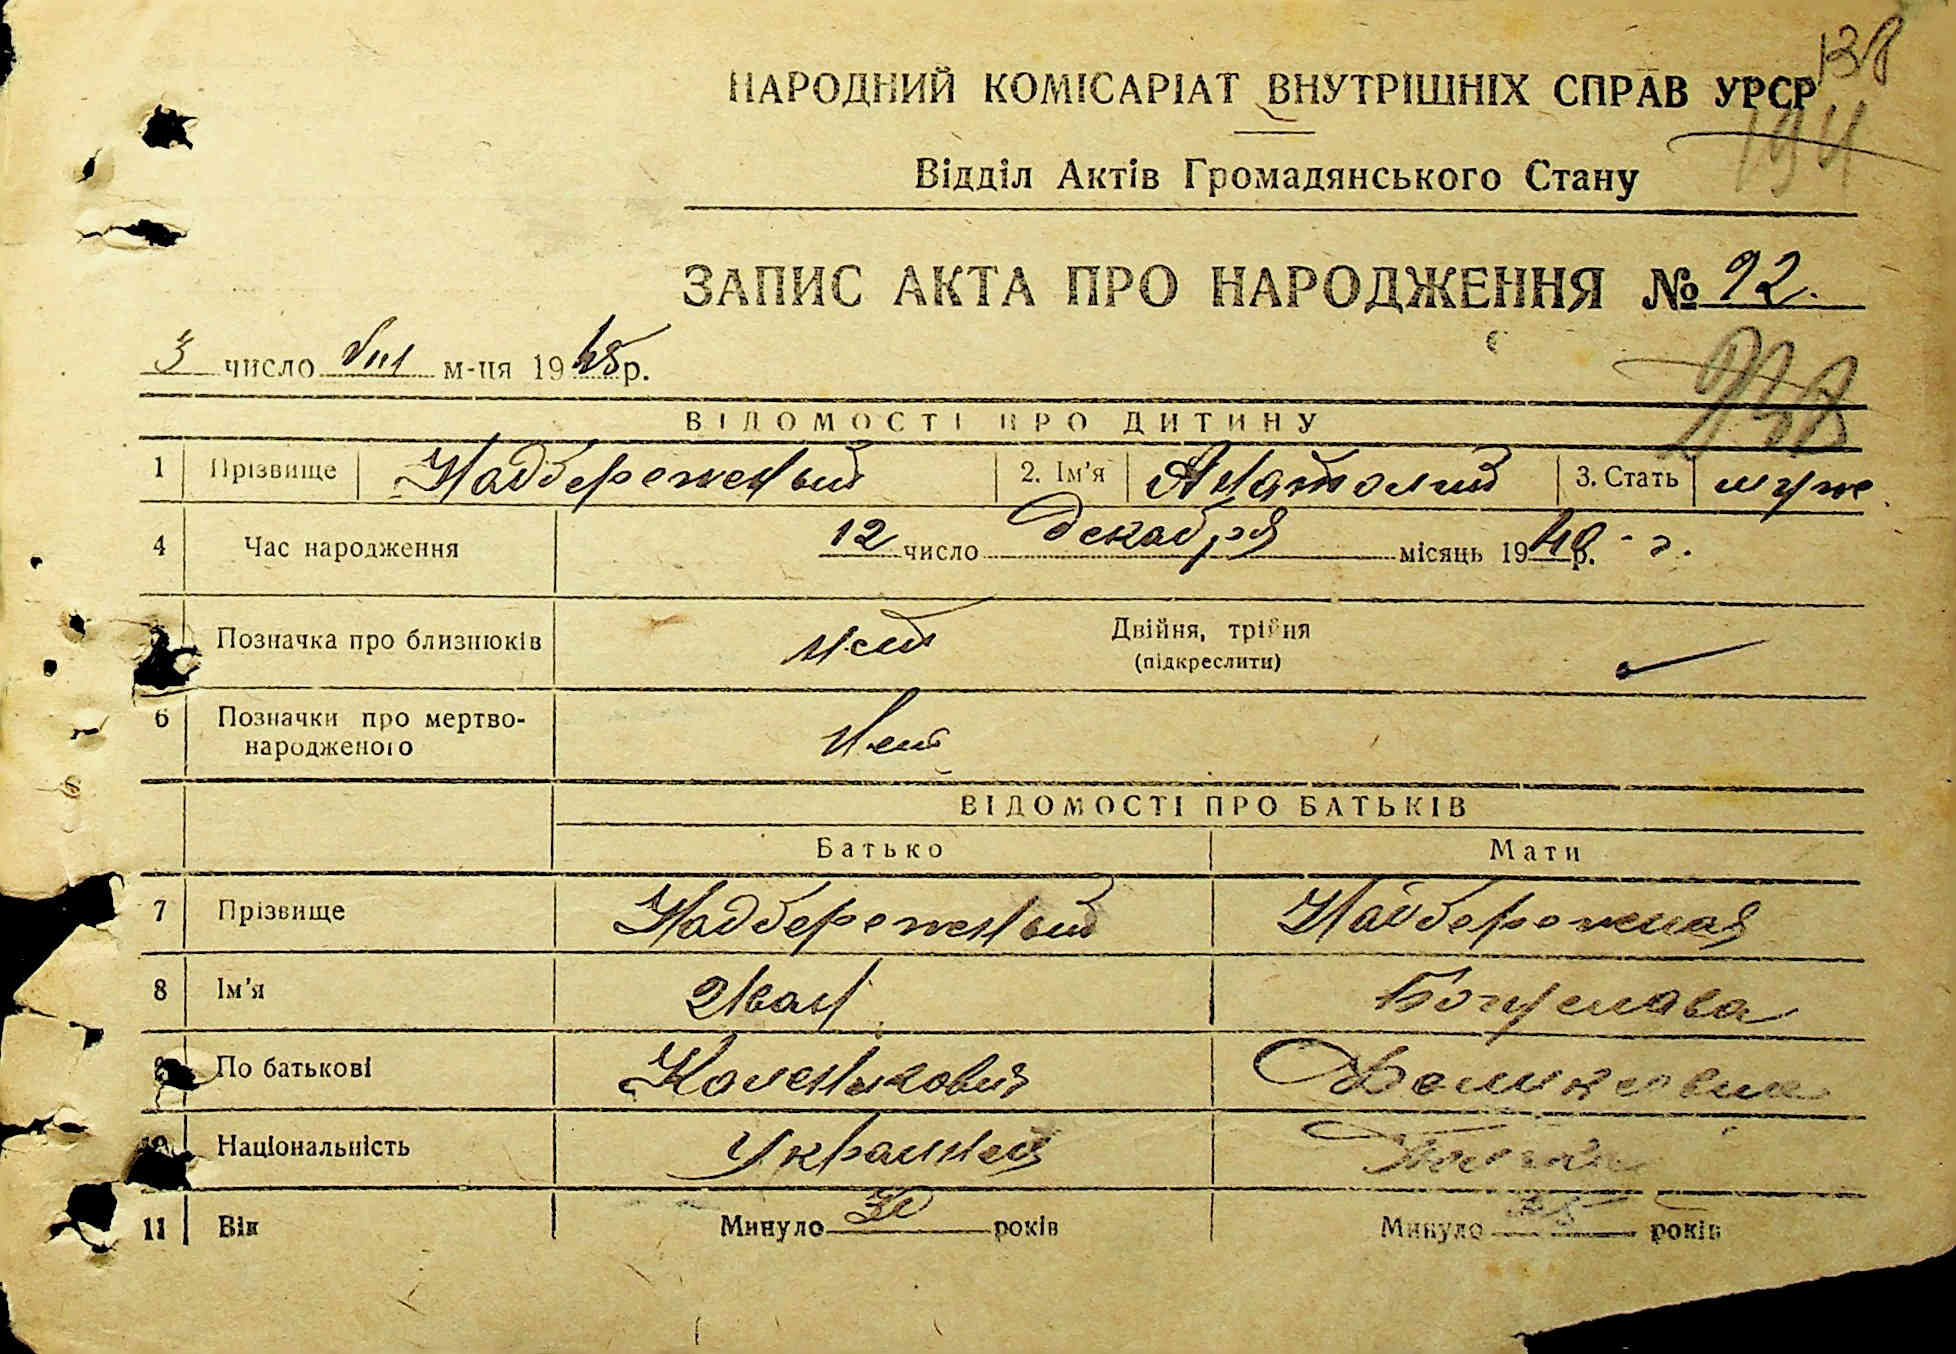 138
194
НАРОДНИЙ КОМІСАРІАТ ВНУТРІШНІХ СПРАВ УРСР
Відділ Актів Громадянського Стану
ЗАПИС АКТА ПРО НАРОДЖЕННЯ № 92.
3 число VIII м-ця 1945 р.
238
ВІДОМОСТІ ПРО ДИТИНУ
1 Прізвище Надбереженый 2. Ім'я Анатолий 3. Стать муж.
4 Час народження 12 число декабря місяць 1940 р. - г.
Позначка про близнюків нет Двійня, трійня
(підкреслити)
6 Позначки про мертво-
народженого Нет
ВІДОМОСТІ ПРО БАТЬКІВ
Батько Мати
7 Прізвище Надбереженый Надбережная
8 Ім'я Иван Богуслава
9 По батькові
10 Національність Украинец
11 Вік Минуло років Минуло років